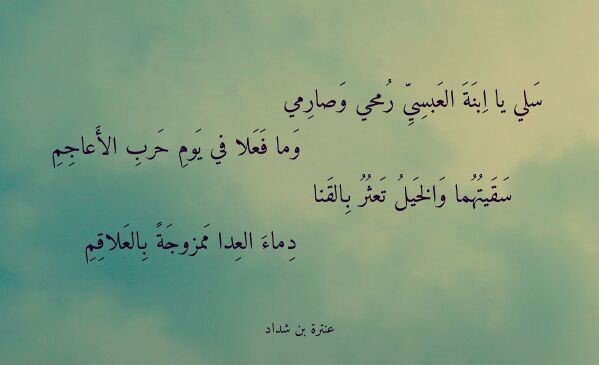 سَلي يا اِبنَةَ العَبسِيِّ رُمحي وَصارِمي
وَما فَعَلا في يَومِ حَربِ الأَعاجِمِ
سَقَيتُهُما وَالخَيلُ تَعثُرُ بِالقَنا
دِماءَ العِدا مَمزوجَةً بِالعَلاقِمِ
عنترة بن شداد